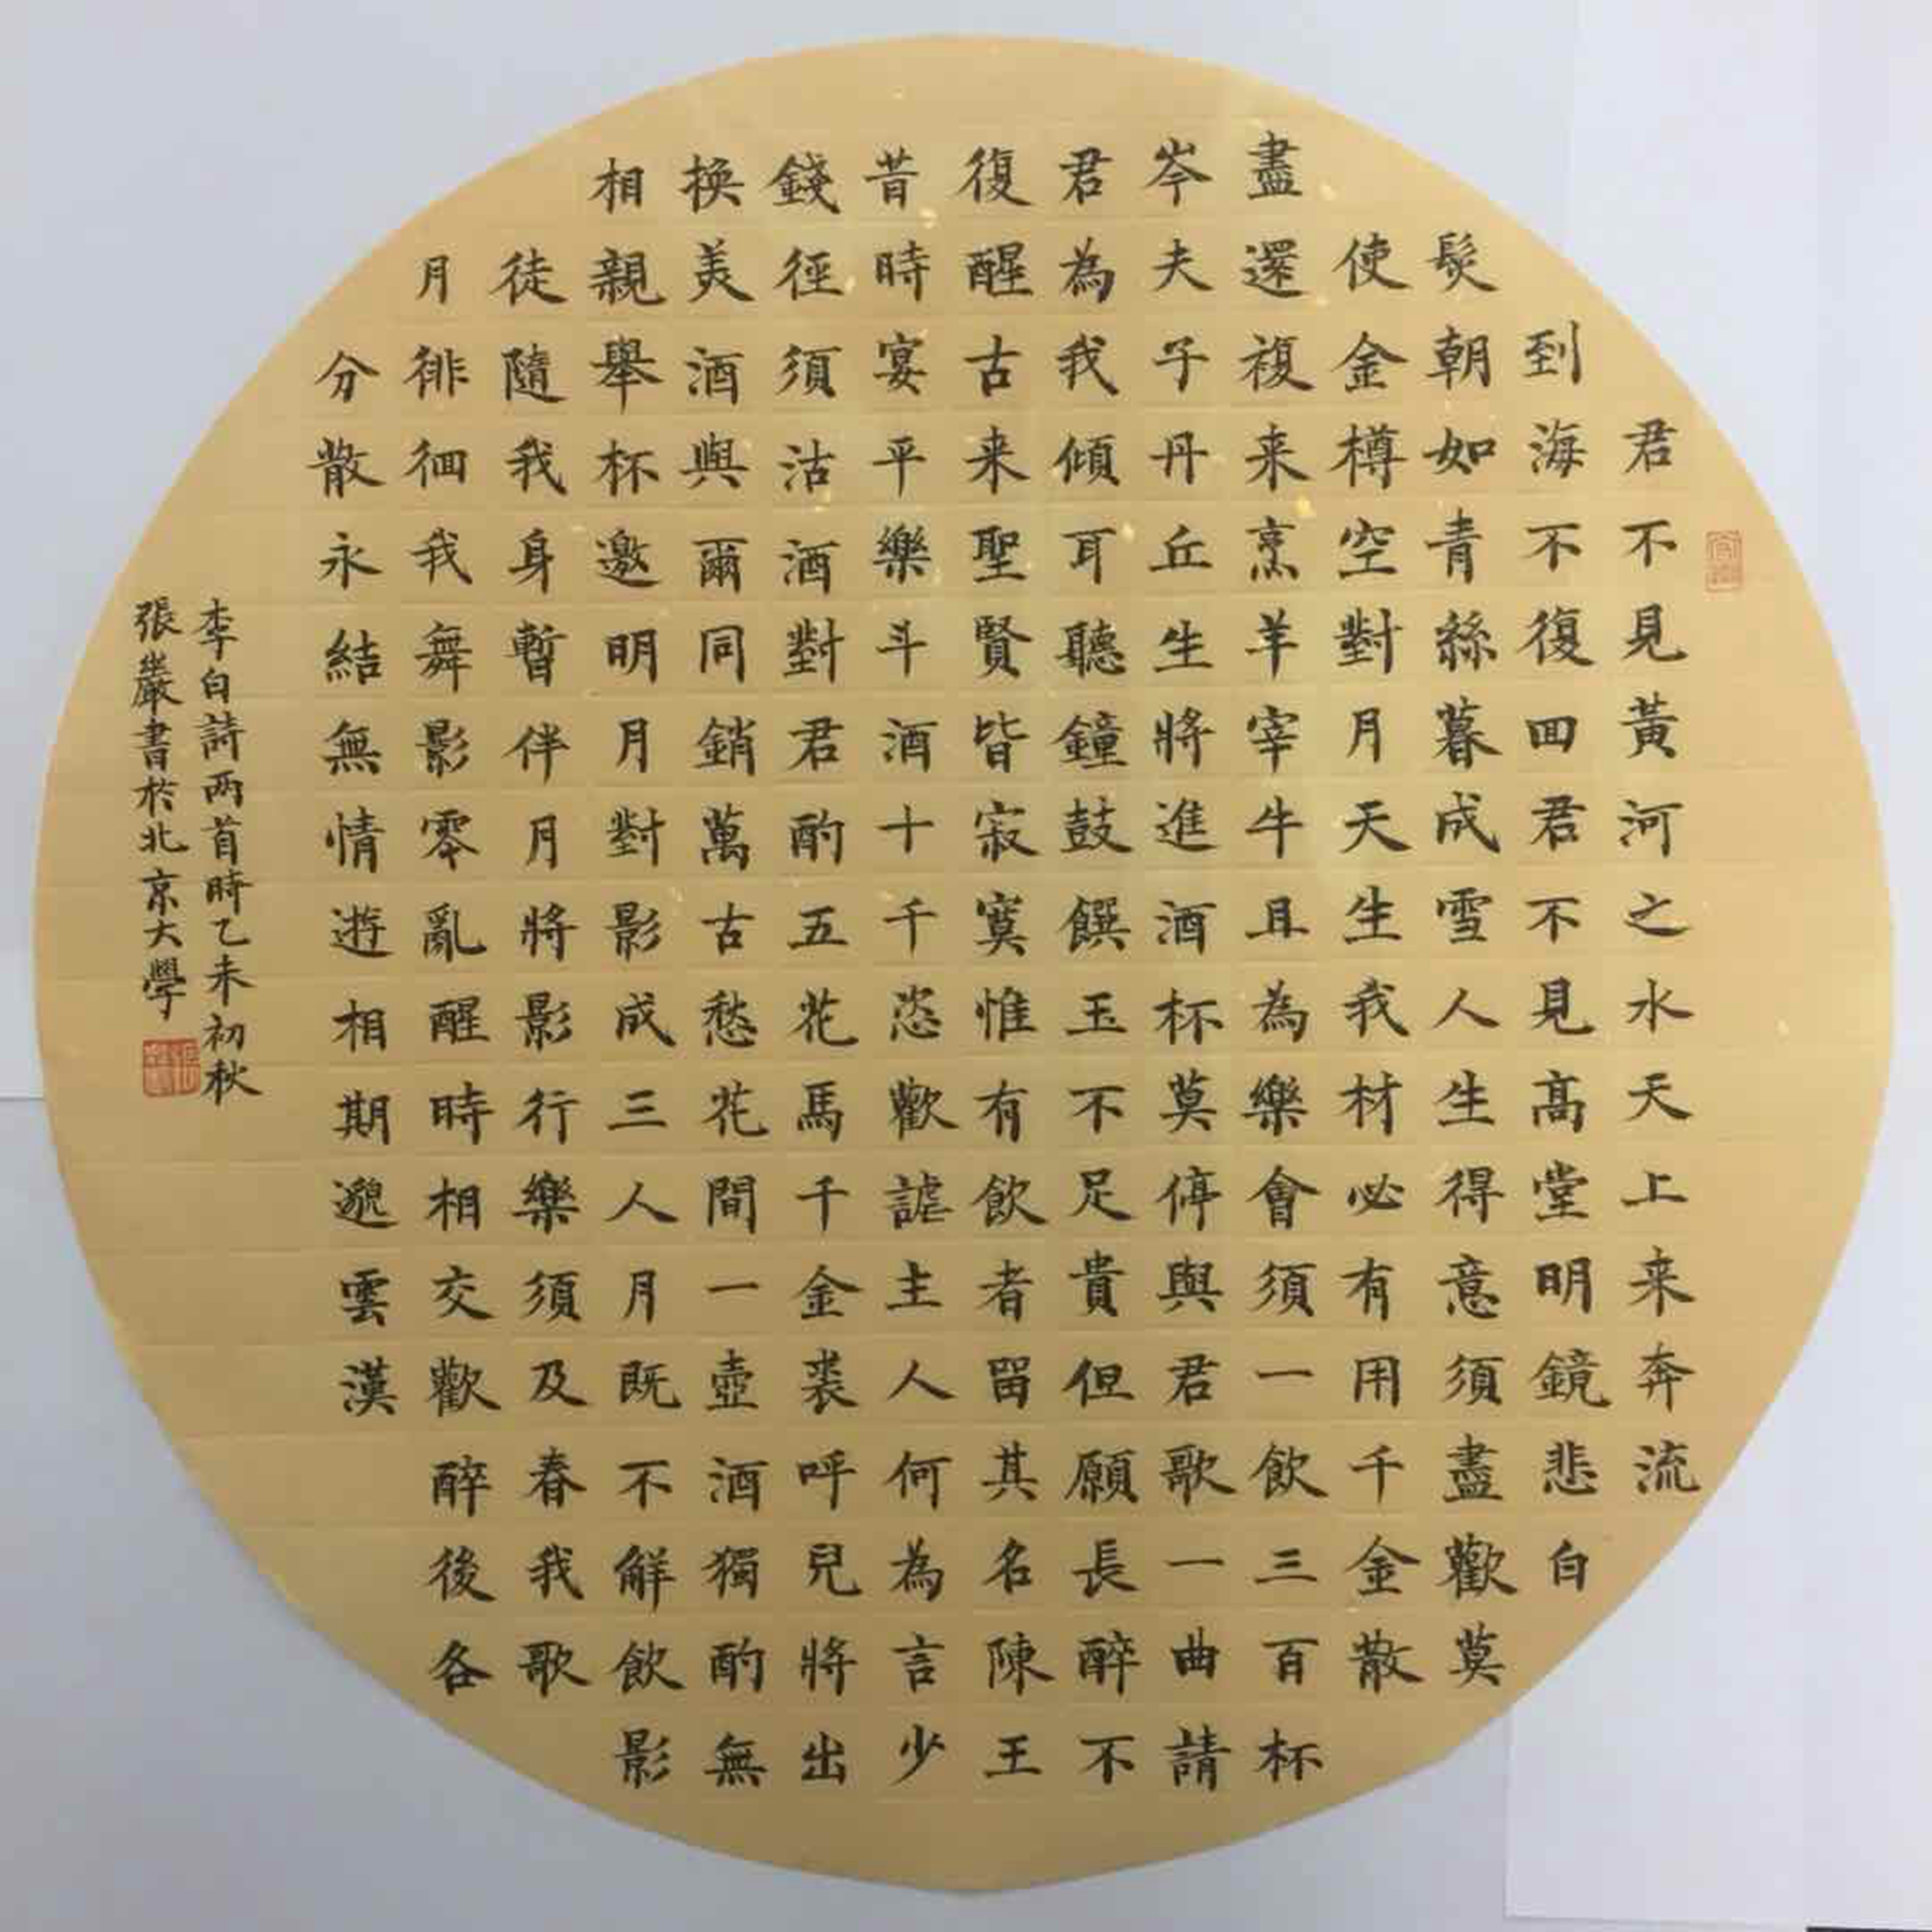 君不見黃河之水天上来奔流
到海不復囬君不見高堂明鏡悲白
髮朝如青絲暮成雪人生得意須盡歡莫
使金樽空對月天生我材必有用千金散
盡還複来烹羊宰牛且為樂會須一飲三百杯
岑夫子丹丘生將進酒杯莫停與君歌一曲請
君為我傾耳聽鐘鼓饌玉不足貴但願長醉不
復醒古来聖賢皆寂寞惟有飲者留其名陳王
昔時宴平樂斗酒十千恣歡謔主人何為言少
錢徑須沽酒對君酌五花馬千金裘呼兒將出
換美酒與爾同銷萬古愁花間一壺酒獨酌無
相親舉杯邀明月對影成三人月既不解飲影
徒隨我身暫伴月將影行樂須及春我歌
月徘徊我舞影零亂醒時相交歡醉後各
分散永結無情遊相期邈雲漢
李白詩两首時乙未初秋
張巖書於北京大學